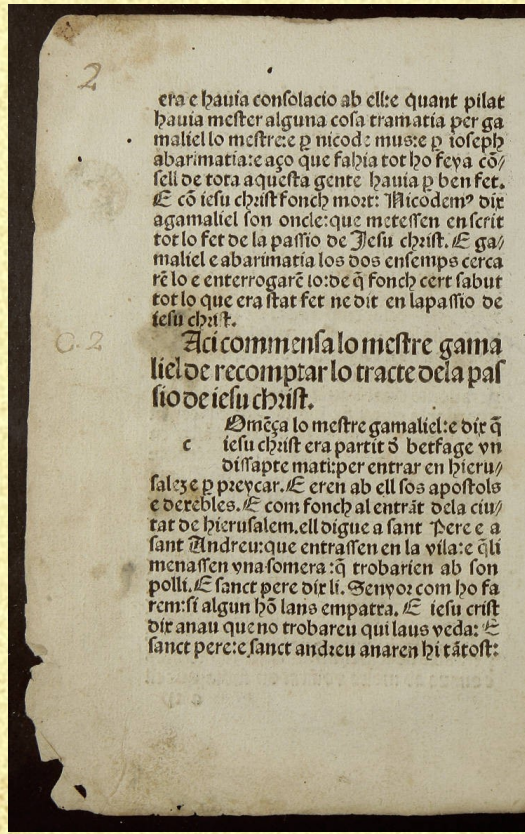 2
era e hauia consolacio ab ell:e quant pilat
hauia mester alguna cosa tramatia per ga
maliel lo mestre:e ꝑ nicode mus:e ꝑ ioseph
abarimatia:e aço que fahia tot ho feya cõ/
sell de tota aquesta gente hauia ꝑ ben fet.
E cõ iesu christ fonch mort: Nicodemꝰ dix
agamaliel son oncle:que metessen enscrit
tot lo fet de la passio de Jesu christ. E ga/
maliel e abarimatia los dos ensemps cerca
rẽ lo e enterrogarẽ lo:de q̃ fonch cert sabut
tot lo que era stat fet ne dit en lapassio de
iesu christ.
C. 2
Aci commensa lo mestre gama
liel de recomptar lo tracte dela pas
sio de iesu christ.
Omẽça lo mestre gamaliel:e dix q̃
c iesu christ era partit d̃ betfage vn
dissapte mati:per entrar en hieru/
salez e ꝑ preycar. E eren ab ell sos apostols
e dexebles. E com fonch al entrãt dela ciu/
tat de hierusalem.ell digue a sant Pere e a
sant Andreu:que entrassen en la vila:e q̃li
menassen vna somera:q̃ trobarien ab son
polli. E sanct pere dix li. Senyor com ho fa
rem:si algun hõ lans empatxa. E iesu crist
dix anau que no trobareu qui laus veda: E
sanct pere:e sanct andreu anaren hi tãtost: